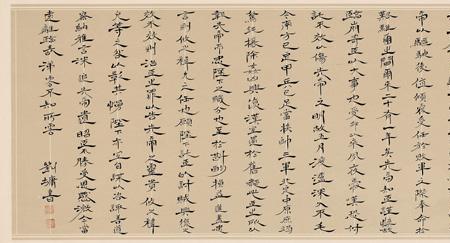 帝以驅馳後值傾覆受任於敗軍之際奉命於
難之間爾來二十有一年矣先帝知臣謹慎故
臨崩寄臣以大事也受命以來夙夜憂歎恐付
託不效以傷先帝之明故五月渡瀘深入不毛
今南方已定甲兵已足當獎帥三軍北定中原庶竭
駑鈍攘除姦凶興復漢室還於舊都此臣所以
報先帝而忠陛下之職分也至於斟酌損益進盡忠
言則攸之禕允之任也願陛下託臣以討賊興復之
效不效則治臣之罪以告先帝之靈責攸之禕
允等之咎以彰其慢陛下亦宜自謀以諮諏善道
察納雅言深追先帝遺詔臣不勝受恩感激今當
遠離臨表涕零不知所云
劉墉書